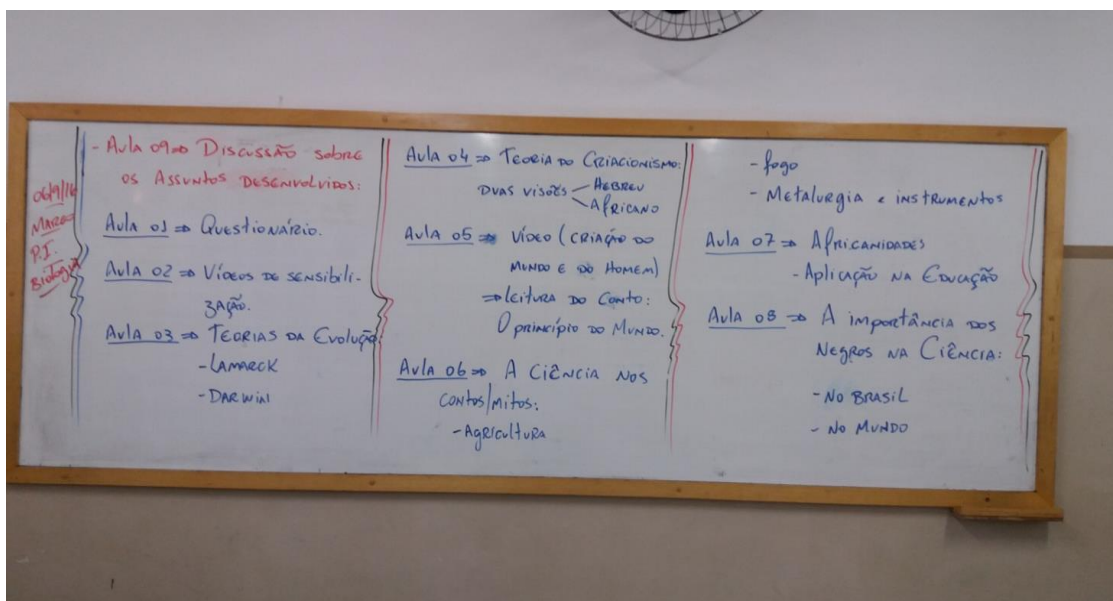 06/9/16
MARCO
P.I.
Biologia
- AulA 09 => Discussão sobre
os Assuntos Desenvolvidos:
AulA 01 => Questionário.
AulA 02 => Vídeos de sensibili-
zação.
AulA 03 => Teorias da Evolução:
- Lamarck
- Darwin
AulA 04 => Teoria do Criacionismo:
duas visões - Hebreu
- Africano
AulA 05 => Vídeo (criação do
mundo e do Homem)
=> Leitura do Conto:
O princípio do Mundo.
AulA 06 => A Ciência nos
contos/mitos:
- Agricultura
- fogo
- Metalurgia e instrumentos
AulA 07 => Africanidades
- Aplicação na Educação
AulA 08 => A importância dos
Negros na Ciência:
- No Brasil
- No Mundo